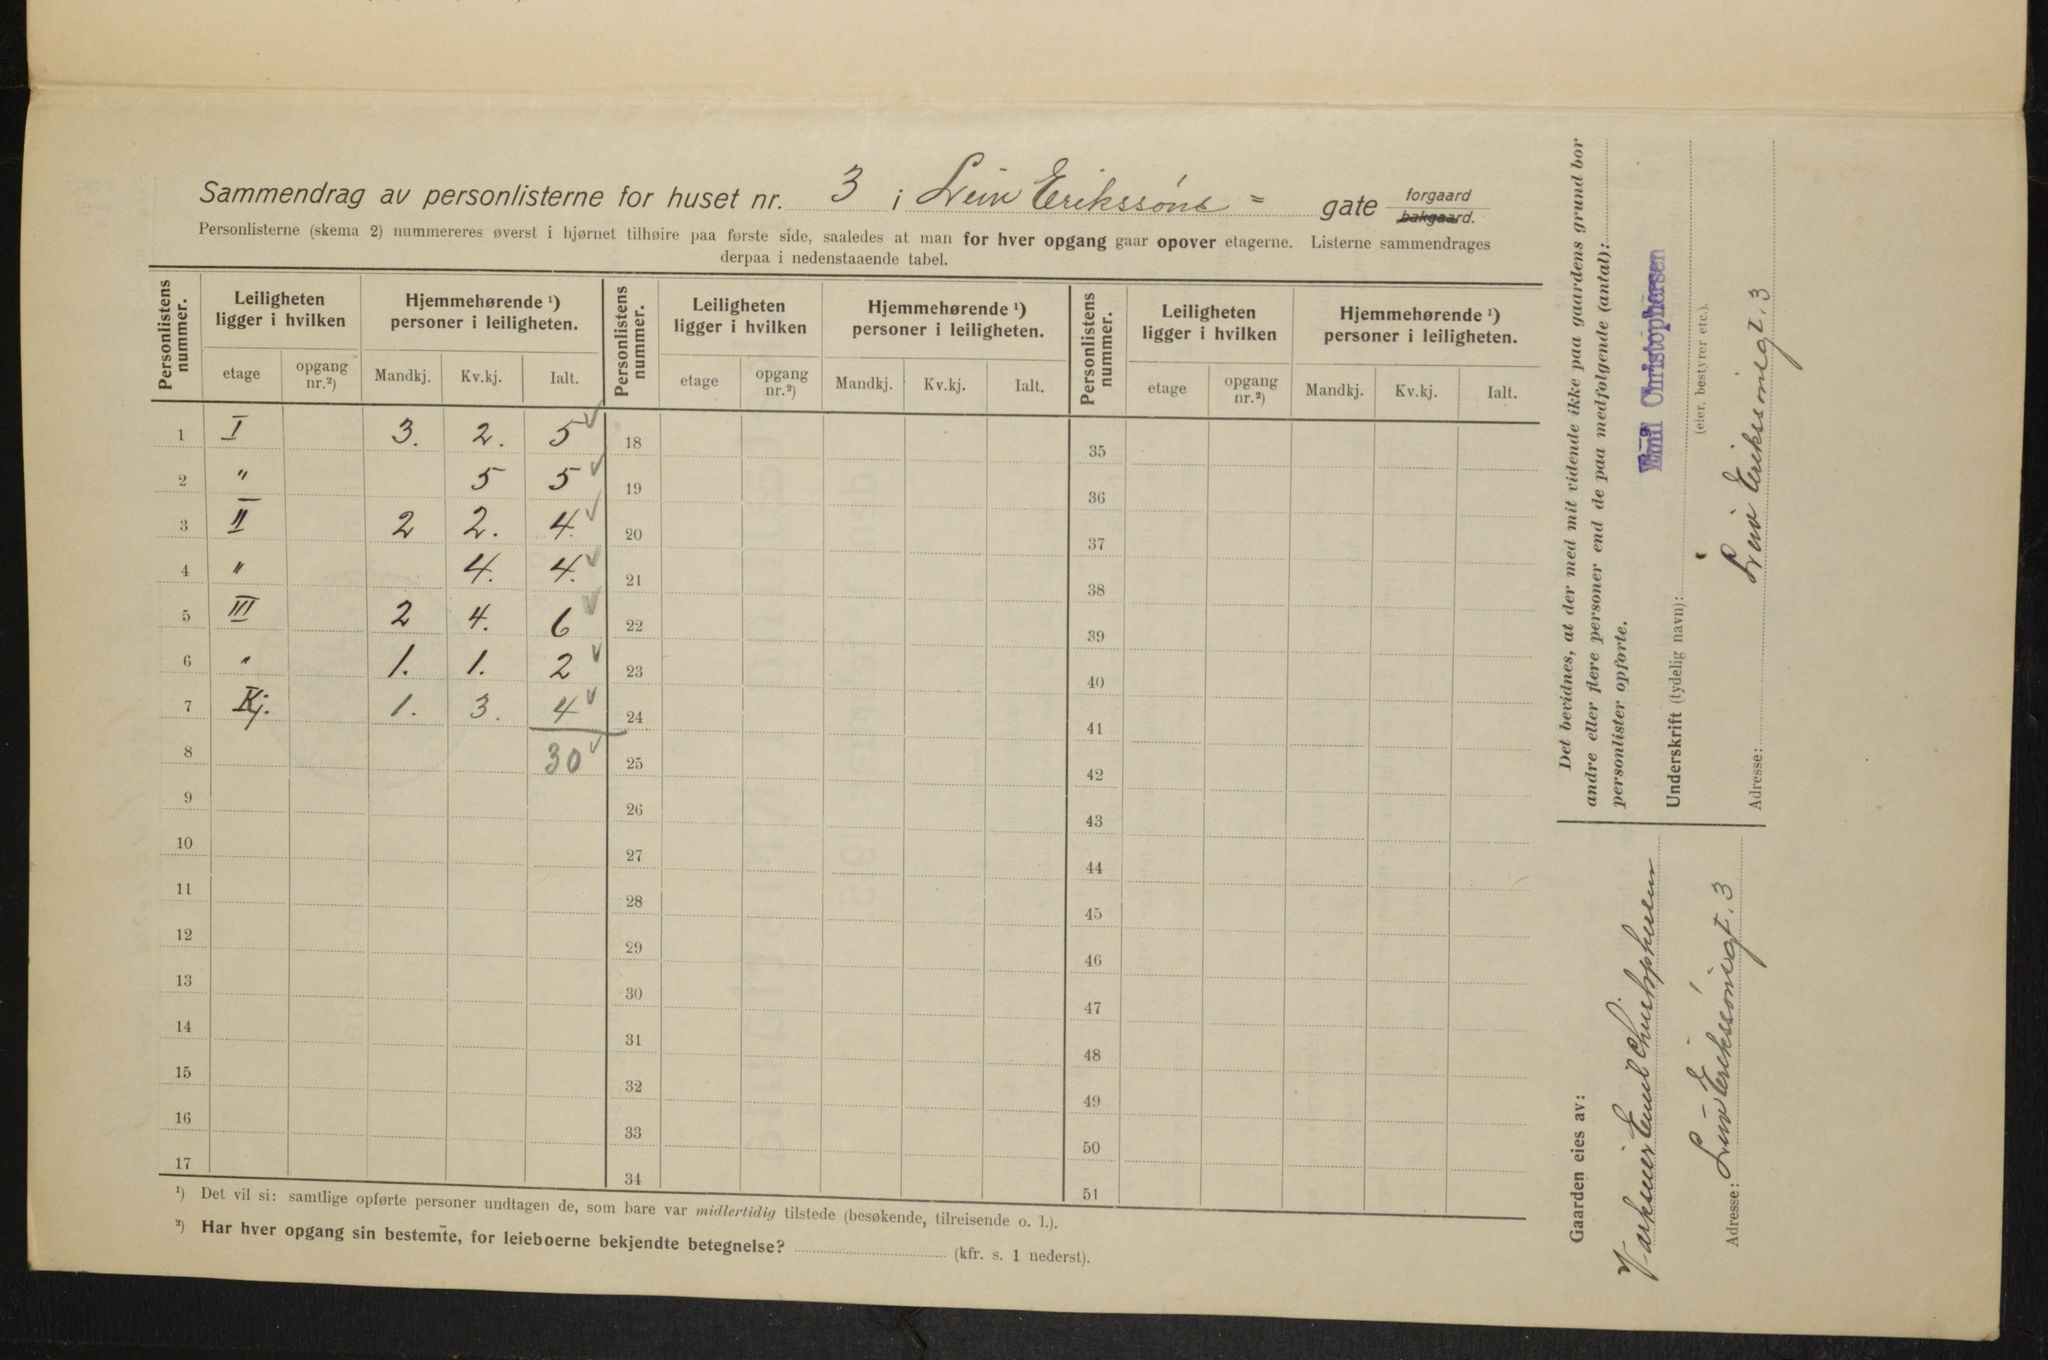 Sammendrag av personlisterne for huset nr. 3 i Leiv Erikssøns = gate forgaard bakgaard.
Personlisterne (skema 2) nummereres øverst i hjørnet tilhøire paa første side, saaledes at man for hver opgang gaar opover etagerne. Listerne sammendrages
derpaa i nedenstaaende tabel.
Personlistens nummer. Leiligheten ligger i hvilken Hjemmehørende ¹) personer i leiligheten. Personlistens nummer. Leiligheten ligger i hvilken Hjemmehørende ¹) personer i leiligheten. Personlistens nummer. Leiligheten ligger i hvilken Hjemmehørende ¹) personer i leiligheten.
etage opgang nr.²) Mandkj. Kv.kj. Ialt. etage opgang nr.²) Mandkj. Kv.kj. Ialt. etage opgang nr.²) Mandkj. Kv.kj. Ialt.
1 I 3. 2. 5 18 35
2 " 5 5 19 36
3 II 2 2. 4. 20 37
4 " 4. 4. 21 38
5 III 2 4. 6 22 39
6 " 1. 1. 2 23 40
7 Kj. 1. 3. 4 24 41
8 30 25 42
9 26 43
10 27 44
11 28 45
12 29 46
13 30 47
14 31 48
15 32 49
16 33 50
17 34 51
¹) Det vil si: samtlige opførte personer undtagen de, som bare var midlertidig tilstede (besøkende, tilreisende o. l.).
²) Har hver opgang sin bestemte, for leieboerne bekjendte betegnelse? (kfr. s. 1 nederst).
Det bevidnes, at der med mit vidende ikke paa gaardens grund bor
andre eller flere personer end de paa medfølgende (antal):
personlister opførte.
Emil Christophersen
Underskrift (tydelig navn):
(eier, bestyrer etc.).
Leiv Erikssønsgt. 3
Adresse:
Gaarden eies av:
Emil Christophersen
Adresse: Leiv Erikssønsgt. 3